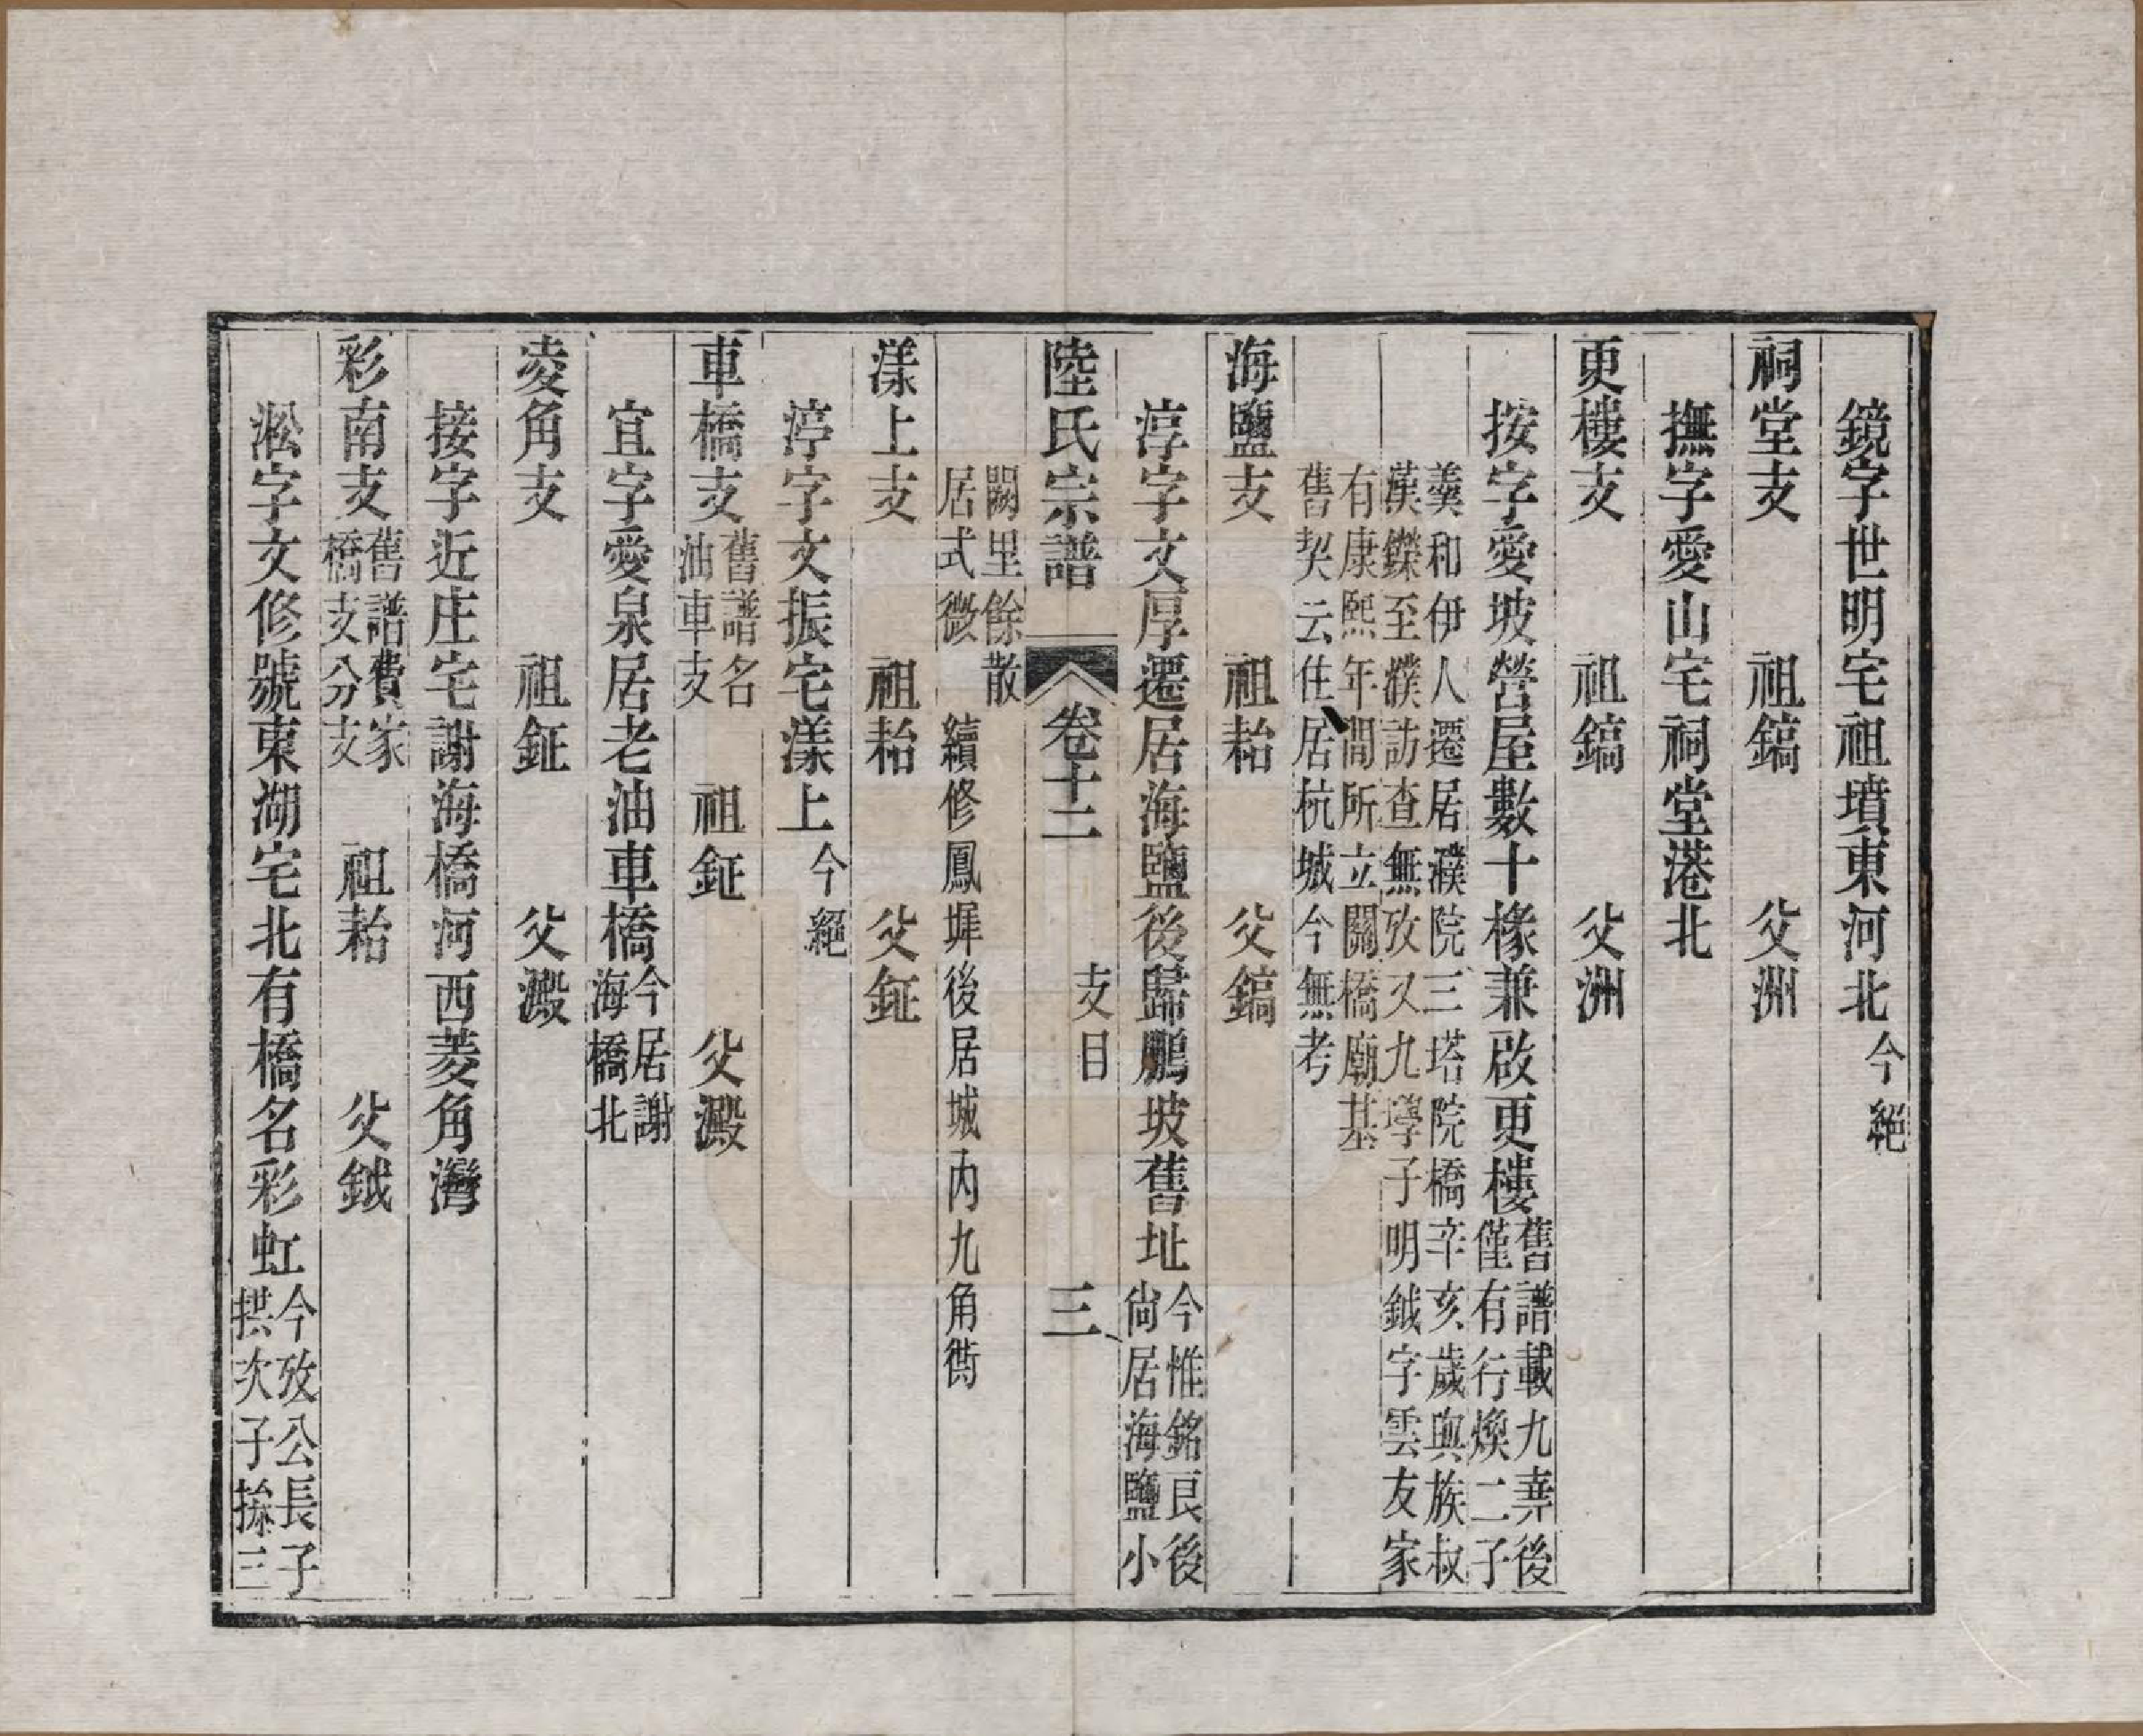 鏡字世明宅祖墳東河北今絕
祠堂支　祖鎬　父洲
撫字愛山宅祠堂港北
更樓支　祖鎬　父洲
按字愛坡營屋數十椽兼啟更樓舊譜載九韋後
僅有行煥二子
羹和伊人遷居濮院三塔院橋辛亥歲與族叔
漢鑠至濮訪查無攷又九㝇子明鉞字雲友家
有康熙年間所立關橋廟基
舊契云住居杭城今無考
海鹽支　祖耛　父鎬
淳字文厚遷居海鹽後歸鵬坡舊址今惟銘艮後
尙居海鹽小
陸氏宗譜　卷十二　支目　三
闕里餘散
居式微　續修鳳墀後居城内九角衖
漾上支　祖耛　父鉦
渟字文振宅漾上今絕
車橋支舊譜名
油車支　祖鉦　父澱
宜字愛泉居老油車橋今居謝
海橋北
淩角支　祖鉦　父澱
接字近庄宅謝海橋河西菱角灣
彩南支舊譜費家
橋支分支　祖耛　父鉞
淞字文修號東湖宅北有橋名彩虹今攷公長子
拱次子捺三